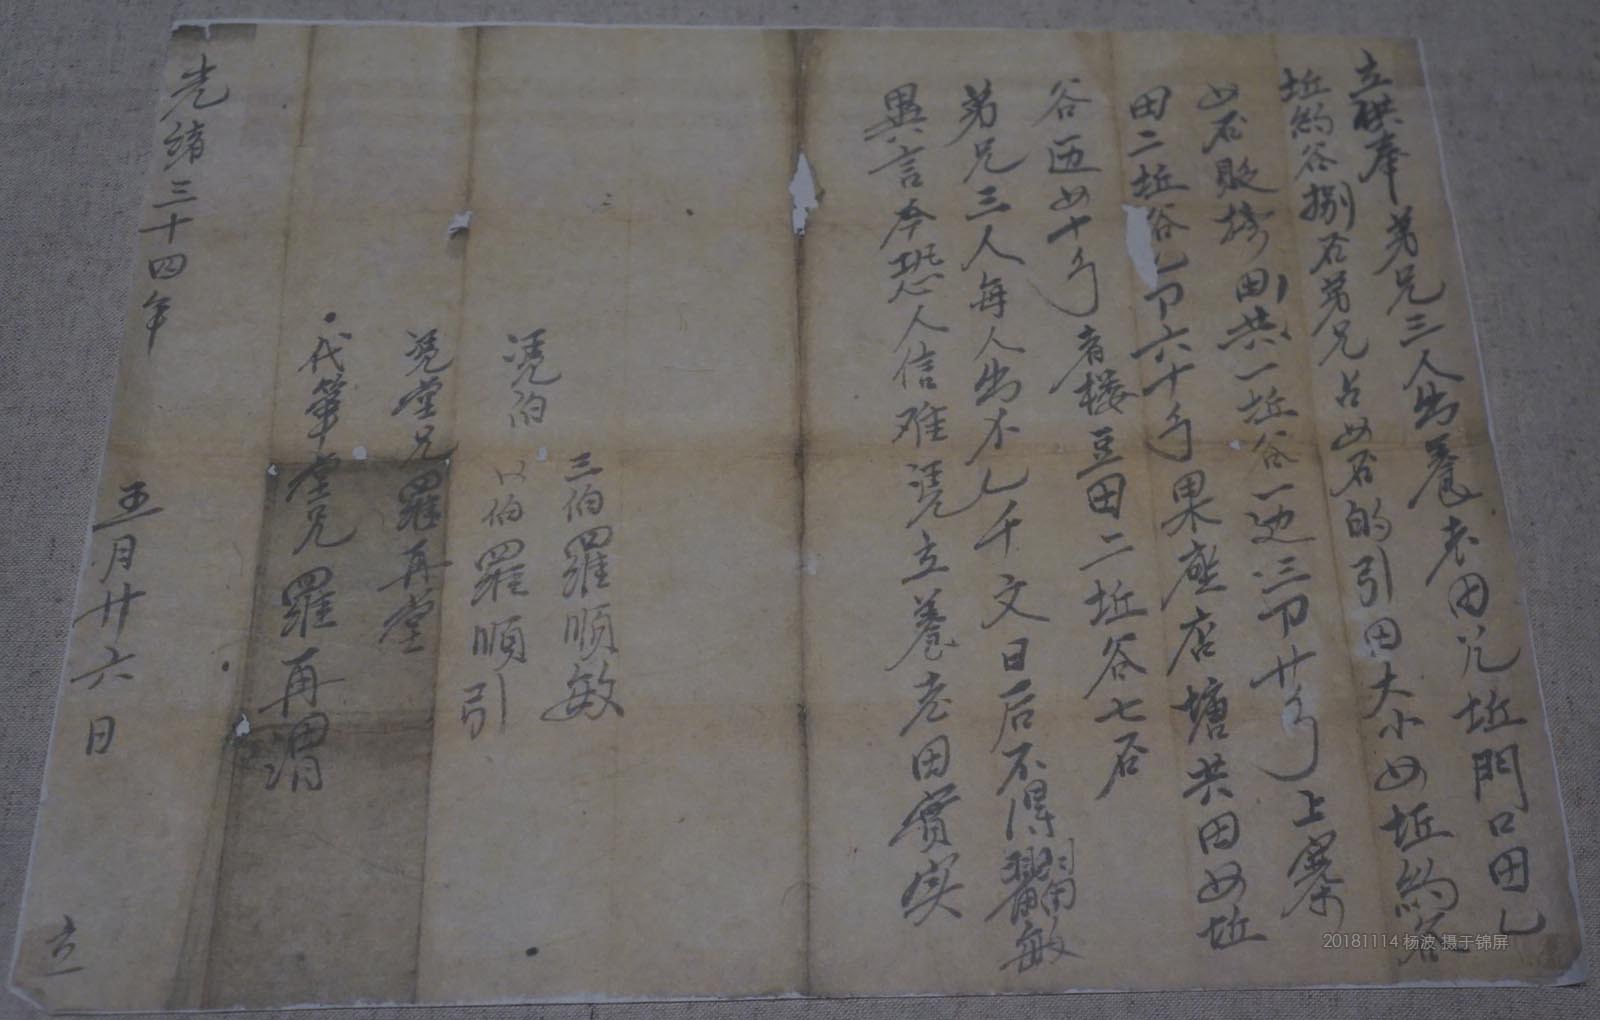 立 奉弟兄三人出養老田 坵門口田乚
坵約谷捌石弟兄占女石的引田大小女坵約谷
女石 田共一坵谷一 三 廿 上寨
田二坵谷 六十 果 店塘共田女坵
谷 女十 者楼豆田二坵谷七石
弟兄三人每人出不乚千文日后不得 敏
異言今恐人信难凭立養老田實实
三伯羅順敏
凭伯 伯羅順引
凭堂兄羅再堂
代筆堂兄羅再渭
光緒三十四年 五月廿六日 立
20181114 杨波 摄于锦屏